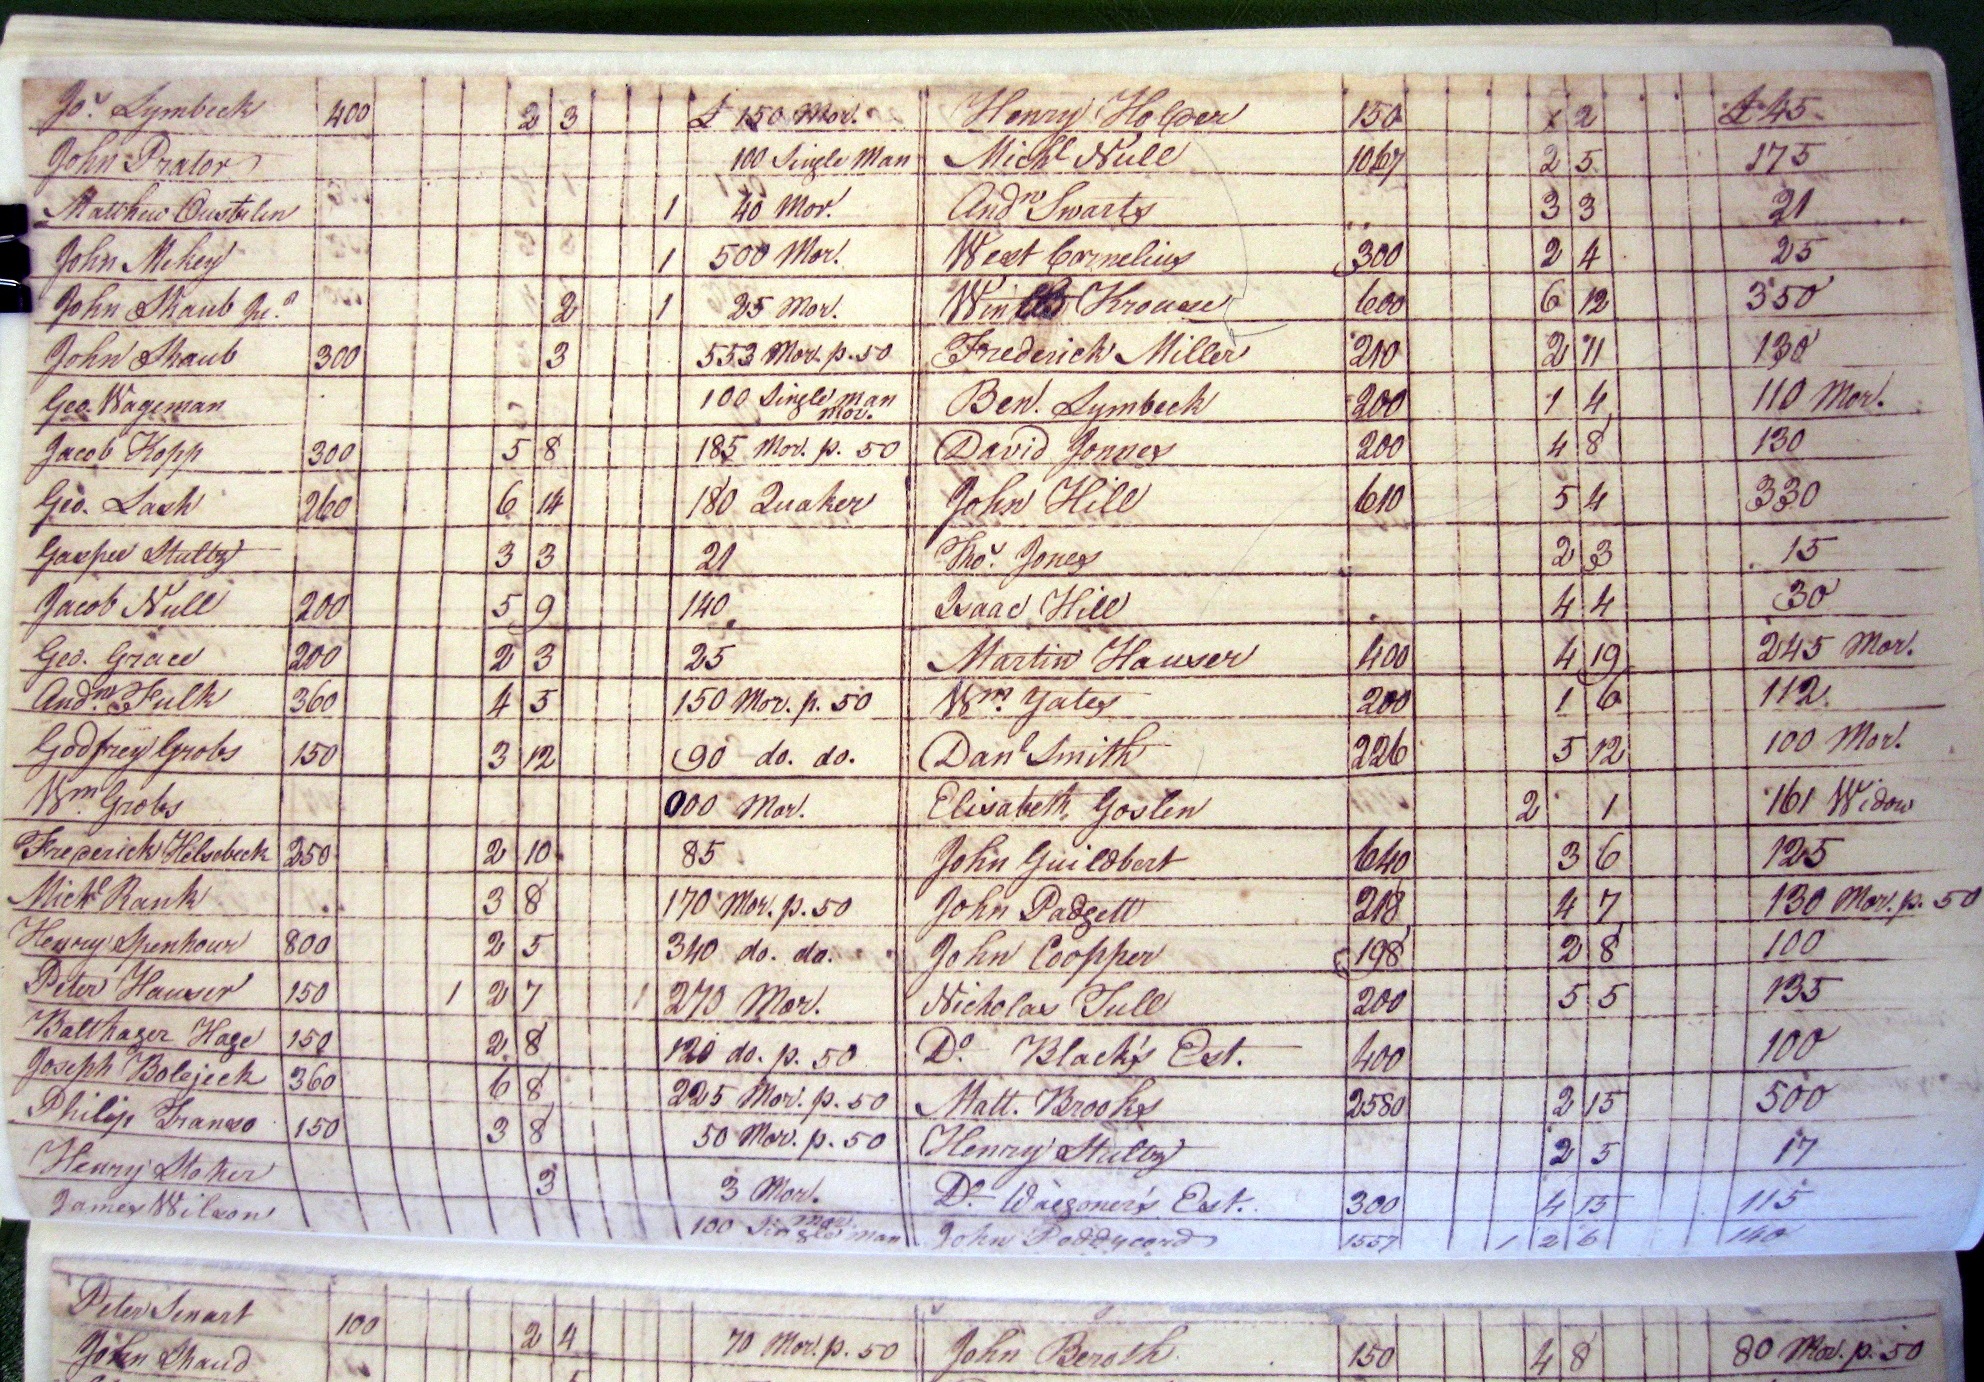 Jos. Lymbeck 400 2 3 £ 150 Mor. Henry Holder 150 x 2 £ 45
John Prator 100 Single Man Michl. Null 1067 2 5 175
Matthew Oustalen 1 40 Mor. Andw. Swarts 3 3 21
John Mckey 1 500 Mor. West Cornelius 300 2 4 25
John Shaub Jr. 2 1 25 Mor. Krouse 600 6 12 350
John Shaub 300 3 553 Mor. p. 50 Frederick Miller 210 2 11 130
Geo. Wageman 100 Single Man Mor. Ben. Lymbeck 200 1 4 110 Mor.
Jacob Hopp 300 5 8 185 Mor. p. 50 David Jonnes 200 4 8 130
Geo. Lash 260 6 14 180 Quaker John Hill 610 5 4 330
Gasper Stultz 3 3 21 Thos. Jones 2 3 15
Jacob Null 200 5 9 140 Isaac Hill 4 4 30
Geo. Grace 200 2 3 25 Martin Hauser 400 4 19 245 Mor.
Andw. Fulk 360 4 5 150 Mor. p. 50 Wm. Yates 200 1 6 112
Godfrey Grobs 150 3 12 90 do. do. Danl. Smith 226 5 12 100 Mor.
Wm. Grobs 000 Mor. Elisabeth Goslen 2 1 161 Widow
Frederick Helsebeck 250 2 10 85 John Guildbert 640 3 6 125
Michl. Rank 3 8 170 Mor. p. 50 John Padgett 218 4 7 130 Mor. p. 50
Henry Spenhour 800 2 5 340 do. do. John Coopper 198 2 8 100
Peter Hauser 150 1 2 7 1 270 Mor. Nicholas Tull 200 5 5 135
Balthazer Hage 150 2 8 120 do. p. 50 Do. Black's Est. 400 100
Joseph Bolejeck 360 6 8 225 Mor. p. 50 Matt. Brooks 2580 2 15 500
Philip Transo 150 3 8 50 Mor. p. 50 Henry Stultz 2 5 17
Henry Stoker 3 3 Mor. Do. Waegoner's Est. 300 4 15 115
James Wilson 100 Single Man Mor. John Poddycord 1557 1 2 6 140
Peter Smart 100 2 4 70 Mor. p. 50 John Beroth 150 4 8 80 Mor. p. 50
John Shaud